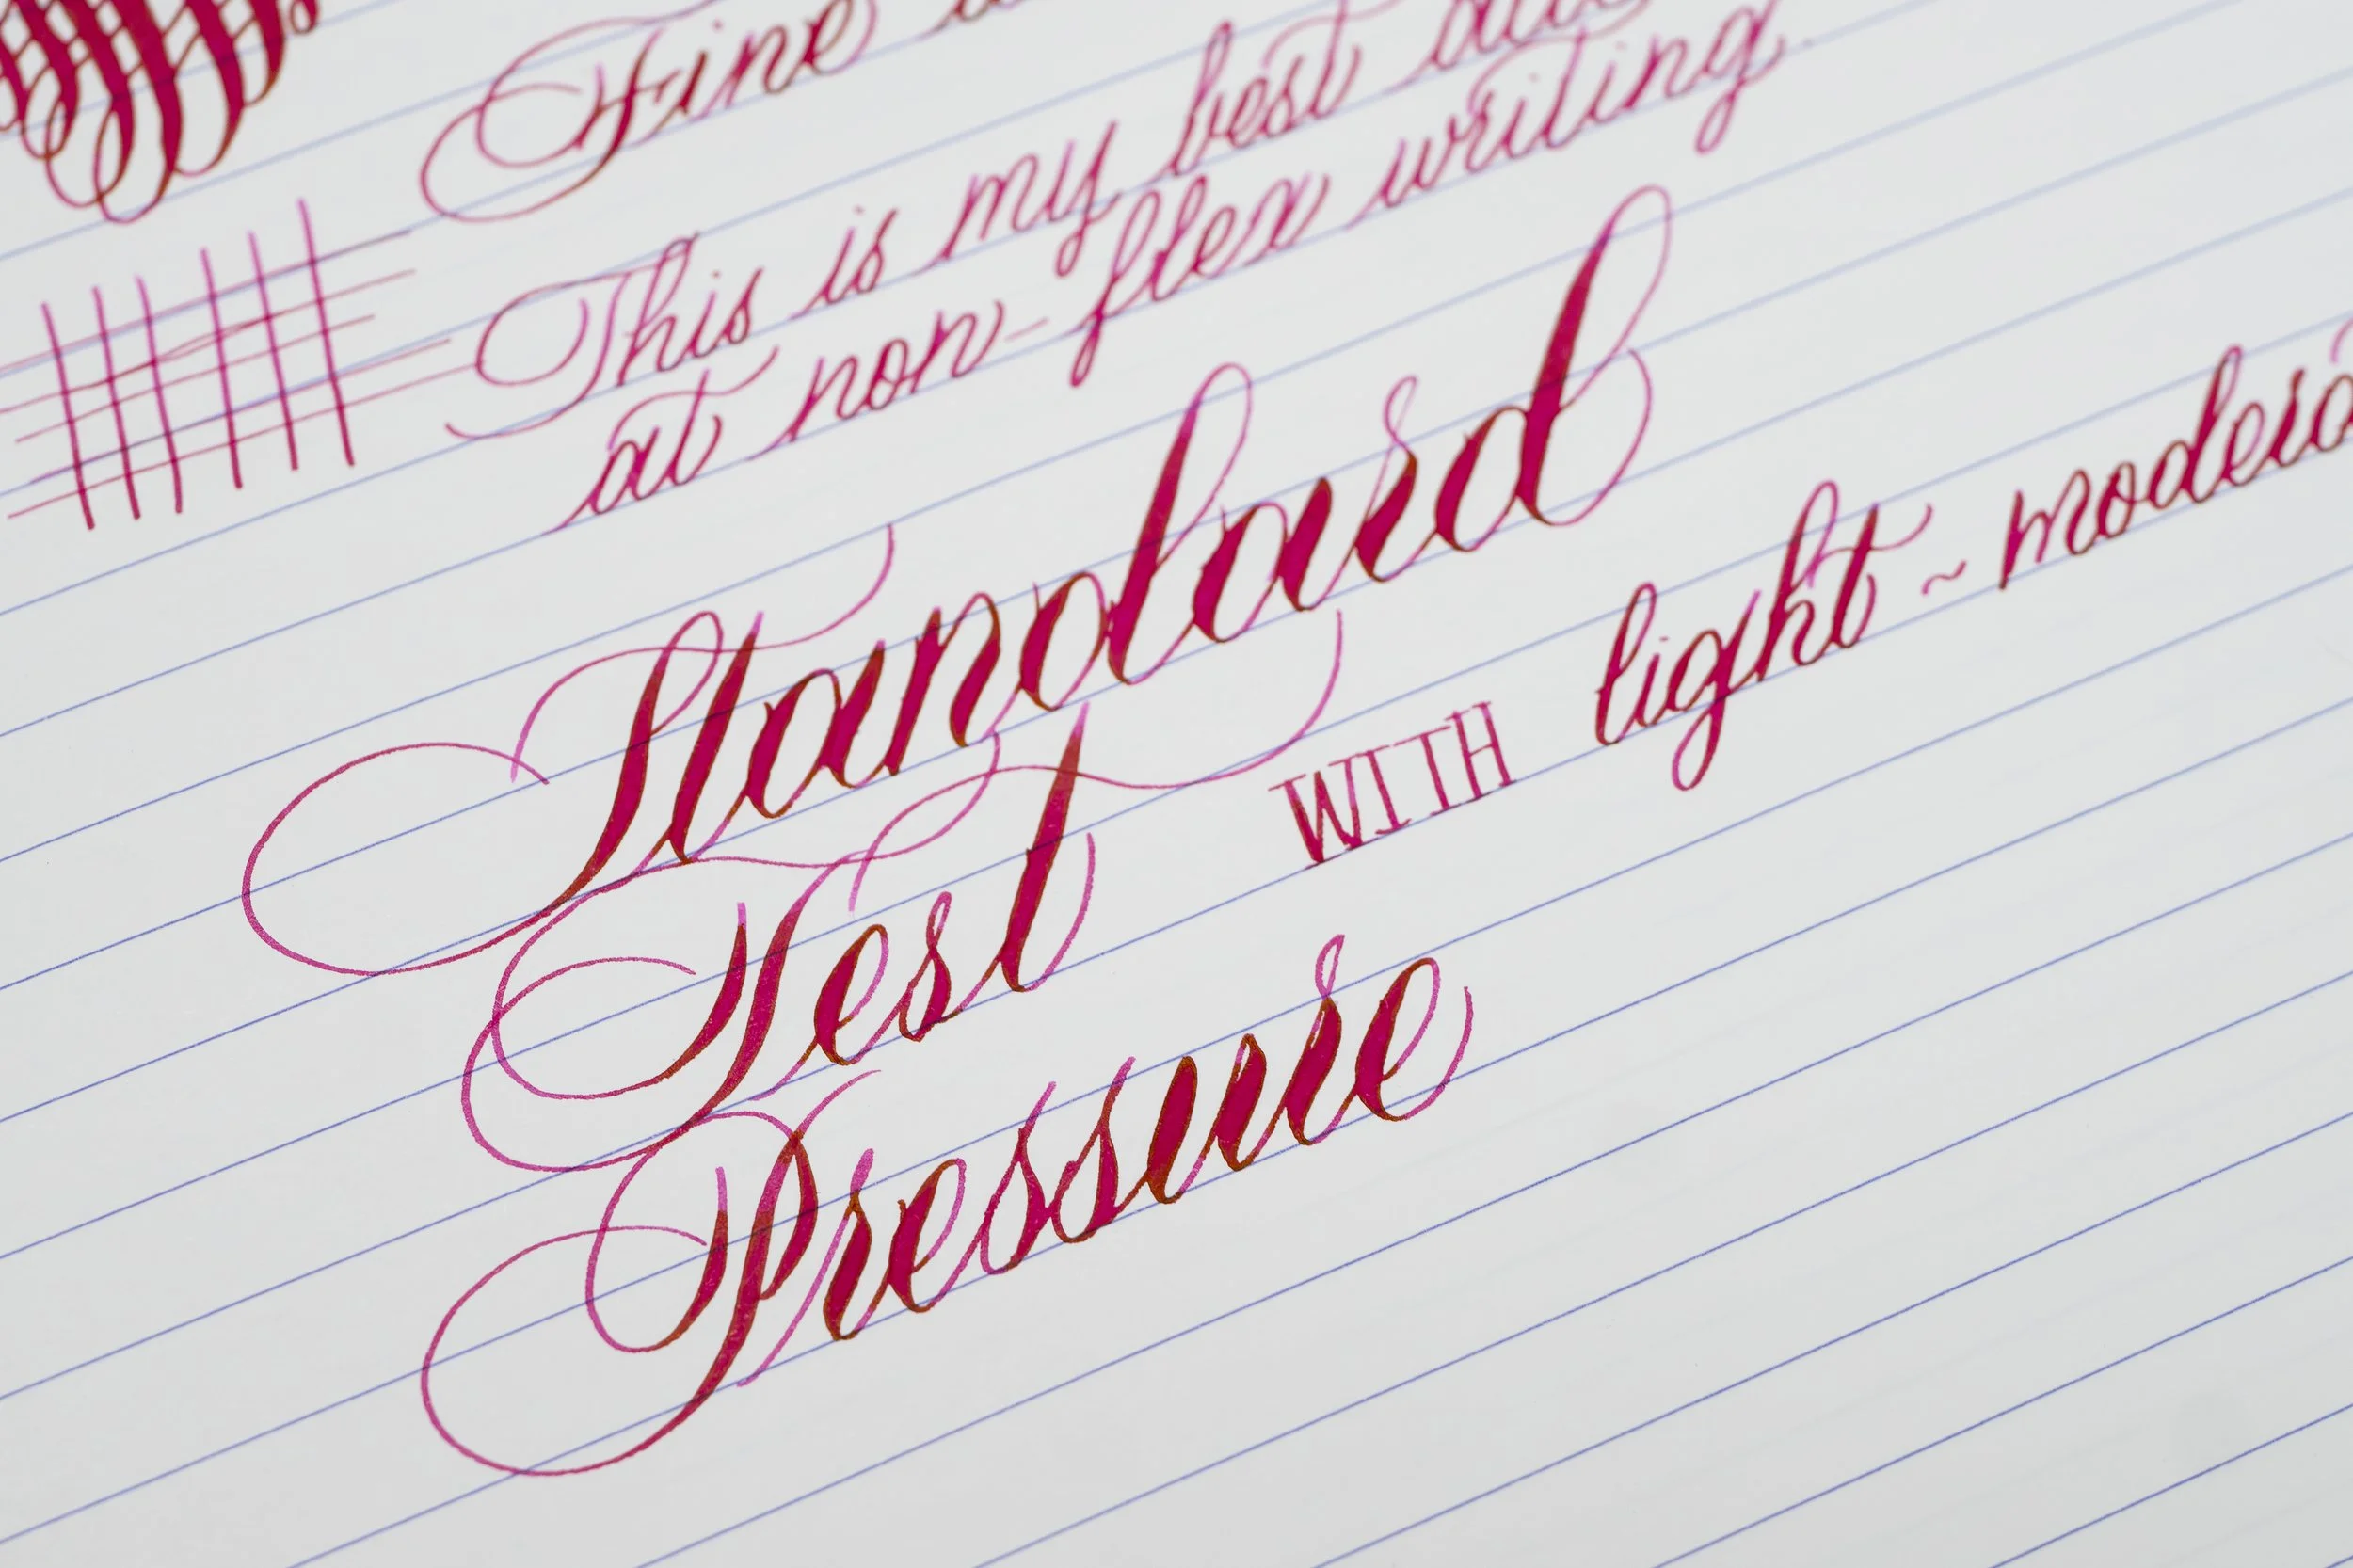 Fine
This is my best
at non-flex writing.
Standard
Test WITH light ~
Pressure